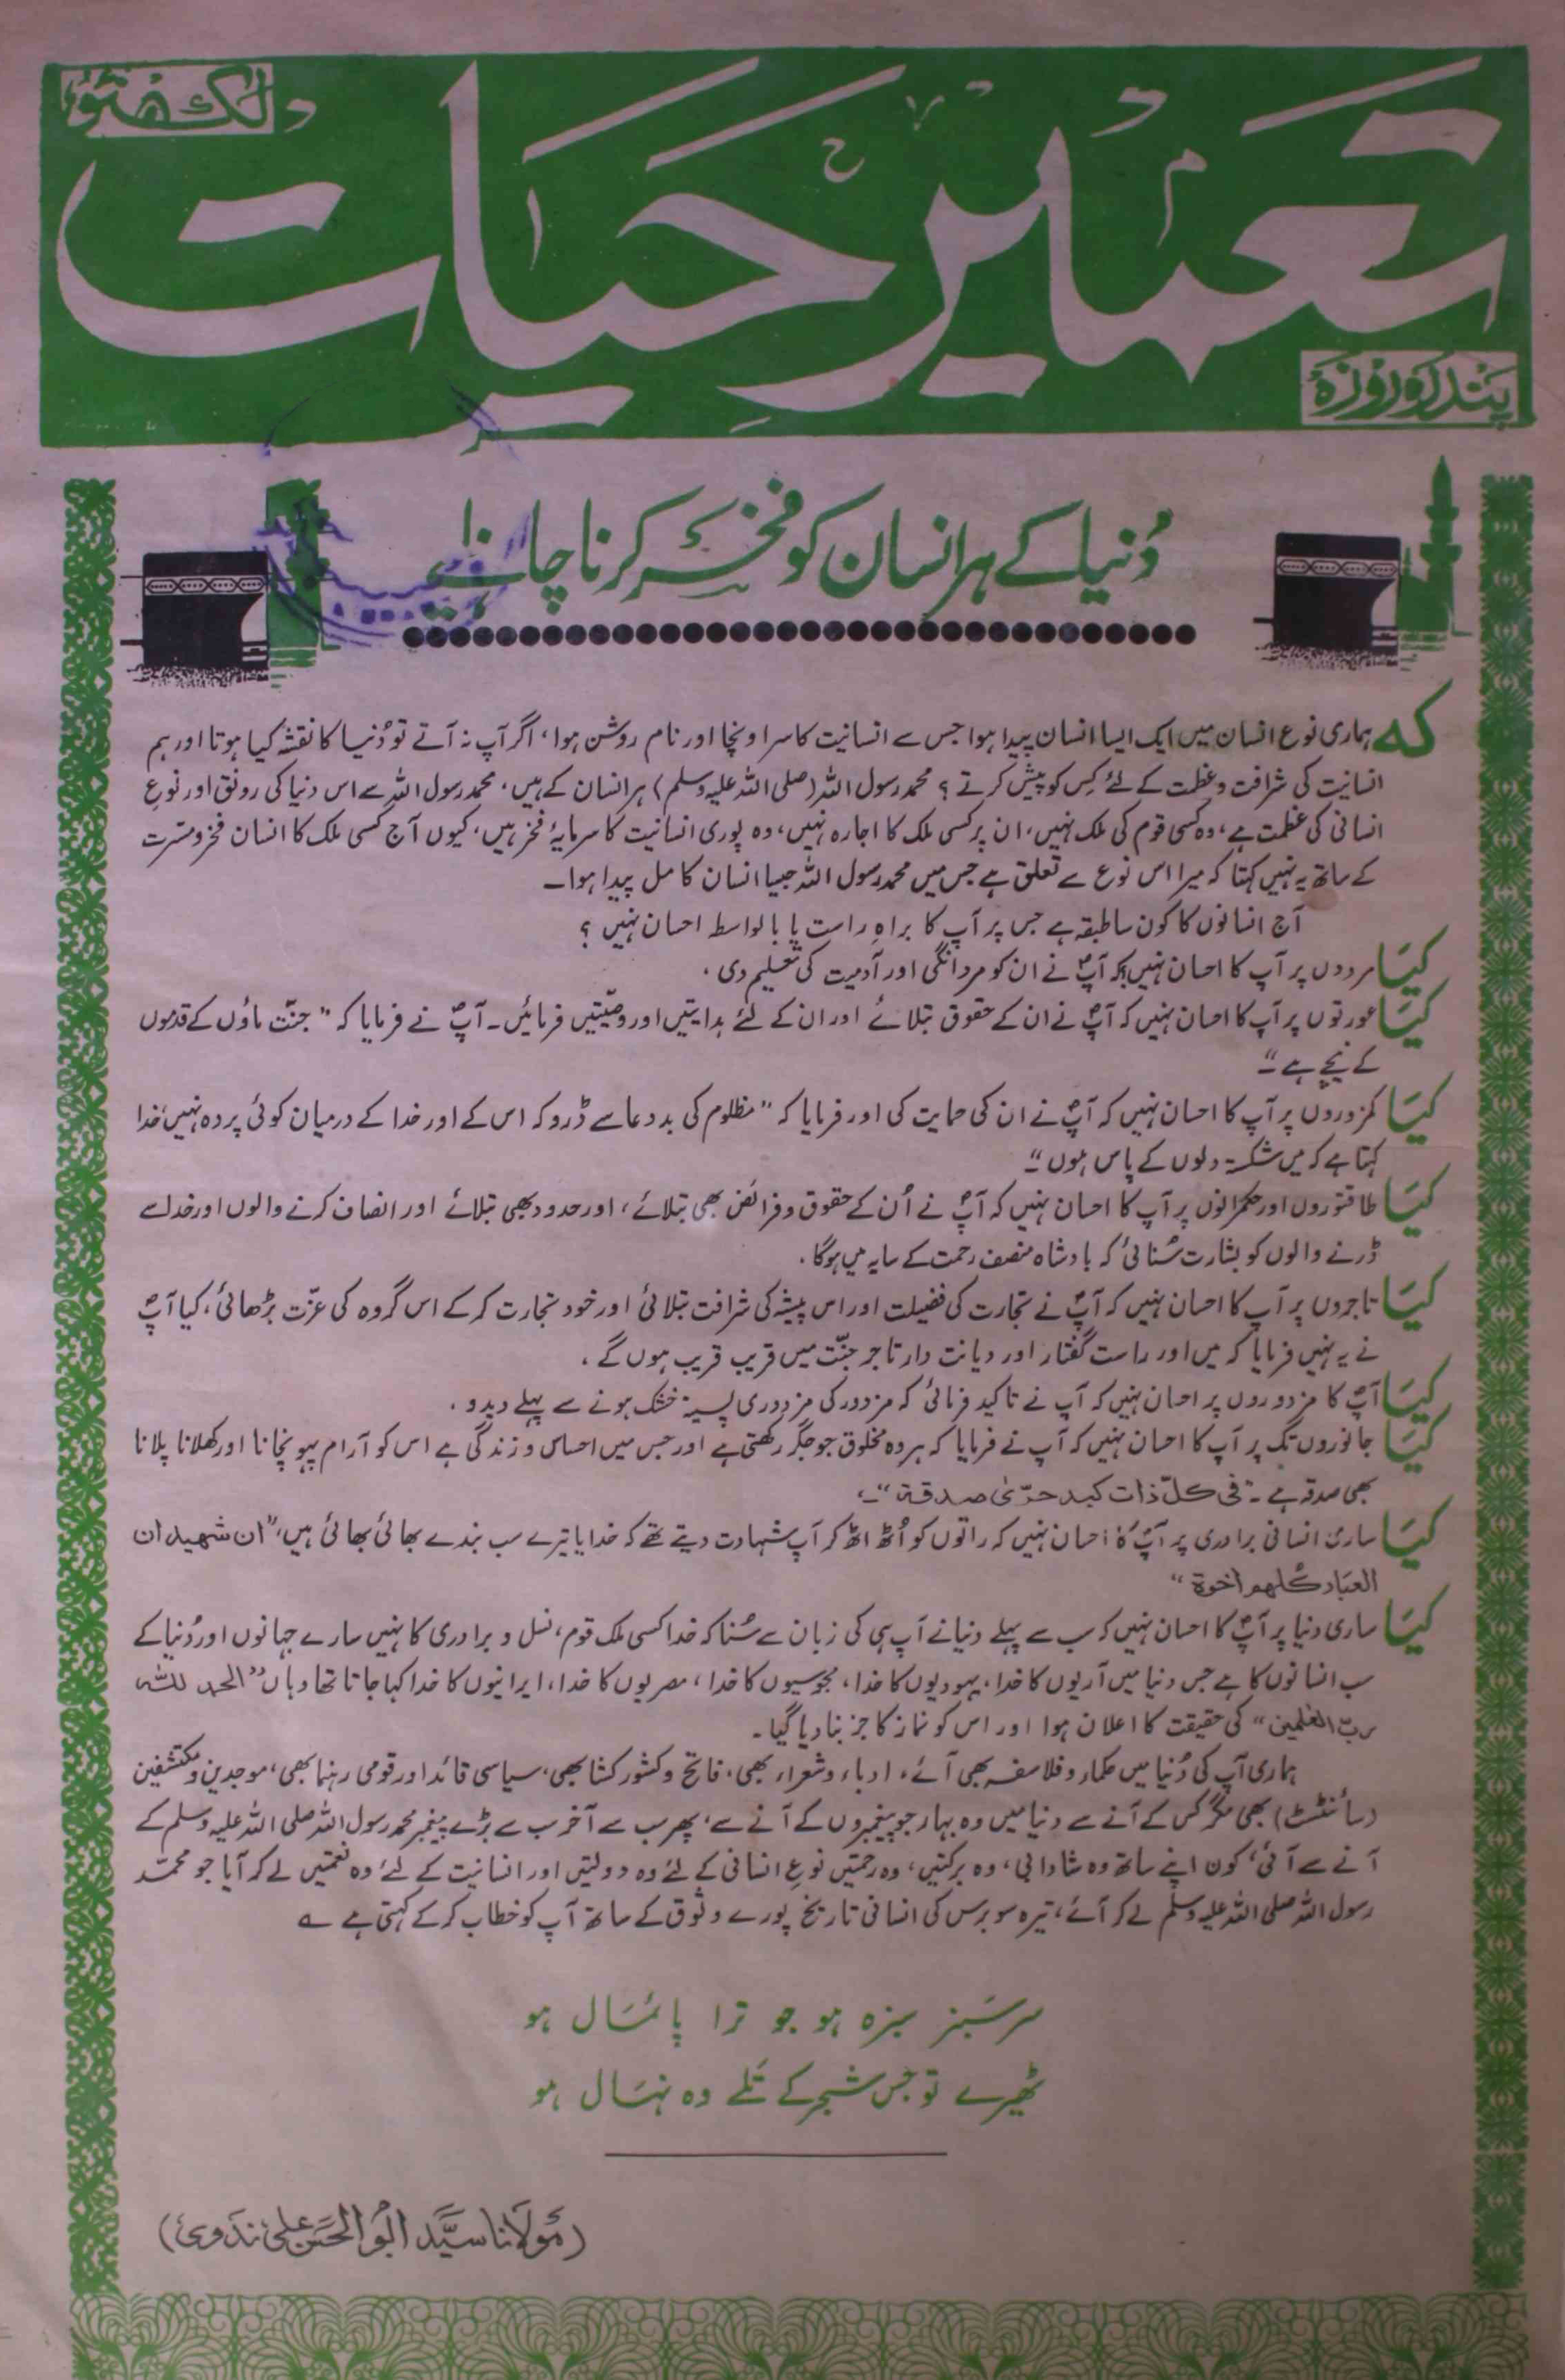 لکھنؤ
تعمیر حیات
پندرہ روزہ
دُنیا کے ہر انسان کو فخر کرنا چاہئے
کہ ہماری نوع انسان میں ایک ایسا انسان پیدا ہوا جس سے انسانیت کا سر اونچا اور نام روشن ہوا، اگر آپ نہ آتے تو دُنیا کا نقشہ کیا ہوتا اور ہم
انسانیت کی شرافت و عظمت کے لئے کِس کو پیش کرتے ؟ محمد رسول اللہ (صلی اللہ علیہ وسلم) ہر انسان کے ہیں، محمد رسول اللہ سے اس دنیا کی رونق اور نوعِ
انسانی کی عظمت ہے، وہ کسی قوم کی ملک نہیں، ان پر کسی ملک کا اجارہ نہیں، وہ پوری انسانیت کا سرمایۂ فخر ہیں، کیوں آج کسی ملک کا انسان فخر و مسرت
کے ساتھ یہ نہیں کہتا کہ میرا اس نوع سے تعلق ہے جس میں محمد رسول اللہ جیسا انسان کامل پیدا ہوا۔
آج انسانوں کا کون سا طبقہ ہے جس پر آپ کا براہِ راست یا بالواسطہ احسان نہیں ؟
کیا مردوں پر آپ کا احسان نہیں کہ آپؐ نے ان کو مردانگی اور آدمیت کی تعلیم دی ۔
کیا عورتوں پر آپ کا احسان نہیں کہ آپؐ نے ان کے حقوق بتلائے اور ان کے لئے ہدایتیں اور وصیّتیں فرمائیں۔ آپؐ نے فرمایا کہ "جنّت ماؤں کے قدموں
کے نیچے ہے"۔
کیا کمزوروں پر آپ کا احسان نہیں کہ آپؐ نے ان کی حمایت کی اور فرمایا کہ "مظلوم کی بددعا سے ڈرو کہ اس کے اور خدا کے درمیان کوئی پردہ نہیں، خدا
کہتا ہے کہ میں شکستہ دلوں کے پاس ہوں"۔
کیا طاقتوروں اور حکمرانوں پر آپ کا احسان نہیں کہ آپؐ نے اُن کے حقوق و فرائض بھی بتلائے، اور حدود بھی بتلائے اور انصاف کرنے والوں اور خدا سے
ڈرنے والوں کو بشارت سُنائی کہ بادشاہ منصف رحمت کے سایہ میں ہوگا ۔
کیا تاجروں پر آپ کا احسان نہیں کہ آپؐ نے تجارت کی فضیلت اور اس پیشہ کی شرافت بتلائی اور خود تجارت کر کے اس گروہ کی عزّت بڑھائی، کیا آپؐ
نے یہ نہیں فرمایا کہ میں اور راست گفتار اور دیانت دار تاجر جنّت میں قریب قریب ہوں گے ،
کیا آپؐ کا مزدوروں پر احسان نہیں کہ آپ نے تاکید فرمائی کہ مزدور کی مزدوری پسینہ خشک ہونے سے پہلے دیدو ۔
کیا جانوروں تک پر آپ کا احسان نہیں کہ آپ نے فرمایا کہ ہر وہ مخلوق جو جگر رکھتی ہے اور جس میں احساس و زندگی ہے اس کو آرام پہونچانا اور کھلانا پلانا
بھی صدقہ ہے ۔ "فی کلّ ذات کبد حرّیٰ صدقۃ"۔
کیا ساری انسانی برادری پر آپؐ کا احسان نہیں کہ راتوں کو اُٹھ اٹھ کر آپ شہادت دیتے تھے کہ خدایا تیرے سب بندے بھائی بھائی ہیں، "ان شھید ان
العباد کلھم اخوۃ"
کیا ساری دنیا پر آپؐ کا احسان نہیں کہ سب سے پہلے دنیا نے آپ ہی کی زبان سے سُنا کہ خدا کسی ملک قوم، نسل و برادری کا نہیں سارے جہانوں اور دُنیا کے
سب انسانوں کا ہے جس دنیا میں آریوں کا خدا، یہودیوں کا خدا، مجوسیوں کا خدا، مصریوں کا خدا، ایرانیوں کا خدا کہا جاتا تھا وہاں "الحمد للہ
ربّ العٰلمین" کی حقیقت کا اعلان ہوا اور اس کو نماز کا جز بنا دیا گیا ۔
ہماری آپ کی دُنیا میں حکماء و فلاسفہ بھی آئے، ادباء و شعراء بھی، فاتح و کشور کشا بھی، سیاسی قائد اور قومی رہنما بھی، موجدین و مکتشفین
(سائنٹسٹ) بھی مگر کس کے آنے سے دنیا میں وہ بہار جو پیغمبروں کے آنے سے، پھر سب سے آخر سب سے بڑے پیغمبر محمد رسول اللہ صلی اللہ علیہ وسلم کے
آنے سے آئی، کون اپنے ساتھ وہ شادابی، وہ برکتیں، وہ رحمتیں نوعِ انسانی کے لئے وہ دولتیں اور انسانیت کے لئے وہ نعمتیں لے کر آیا جو محمّد
رسول اللہ صلی اللہ علیہ وسلم لے کر آئے، تیرہ سو برس کی انسانی تاریخ پورے وثوق کے ساتھ آپ کو خطاب کر کے کہتی ہے ؎
سرسبز سبزہ ہو جو ترا پائمال ہو
ٹھیرے تو جس شجر کے تلے وہ نہال ہو
(مولانا سیّد ابو الحسن علی ندوی)